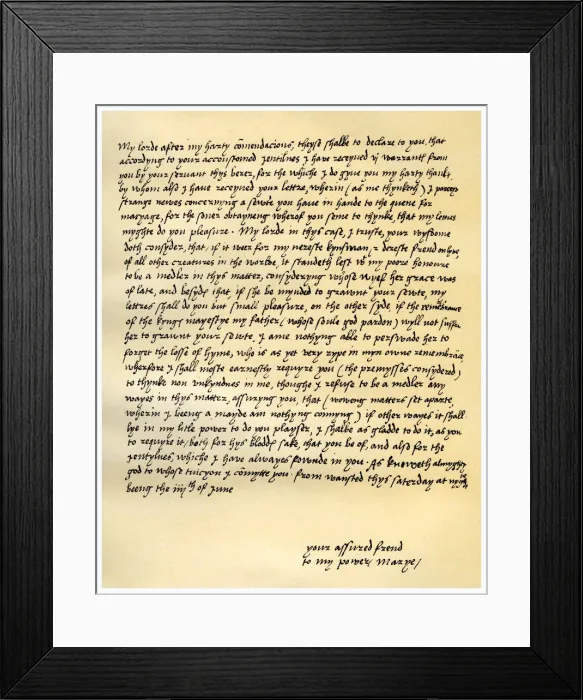 My lorde after my harty cōmendacions, theyse shalbe to declare to you, that
accordyng to your accustomed Jentilnes J have receyved vj warrantꝭ from
you by your servant thys berer, for the whiche J do gyve you my harty thankꝭ,
by whom also J have receyved your lettre, wherin (as me thynketh) J perceyve
strange newes concernyng a sewte you have in hande to the quene for
maryage, for the soner obtayneng wherof you seme to thynke, that my lettres
myghte do you pleasure. My lorde in thys case, J truste, your wysdome
doth consyder, that if it wer for my nereste kynsman, & dereste frend on lyve,
of all other creatures in the worlde, it standeth lest wt my poore honoure
to be a medler in thys matter, consyderyng whose wyef her grace was
of late, and besydꝭ that if she be mynded to graunt your sewte, my
lettres shall do you but small pleasure, on the other syde, if the remembrance
of the kyngꝭ mayestye my father (whose soule god pardon) wyll not suffre
her to grawnt your sewte, J ame nothyng able to perswade her to
forget the losse of hyme, who is as yet very rype in myn owne remembrāce
wherfore J shall moste earnestly requyre you (the premysses consydered)
to thynke non unkyndnes in me, thoughe J refuse to be a medler any
wayes in thys matter, assuryng you, that (wowong matters set aparte,
wherin J being a mayde am nothyng connyng) if other wayes it shall
lye in my litle power to do you playser, J shalbe as gladde to do it, as you
to requyre it, both for hys bloddꝭ sake, that you be of, and also for the
Jentylnes, whiche J have alwayes fownde in you. As knoweth almyghty
god to whose tuicyon J cōmytte you. From wansted thys saterday at nyght
beeng the iiijth of June
your assured frend
to my power/ Marye/